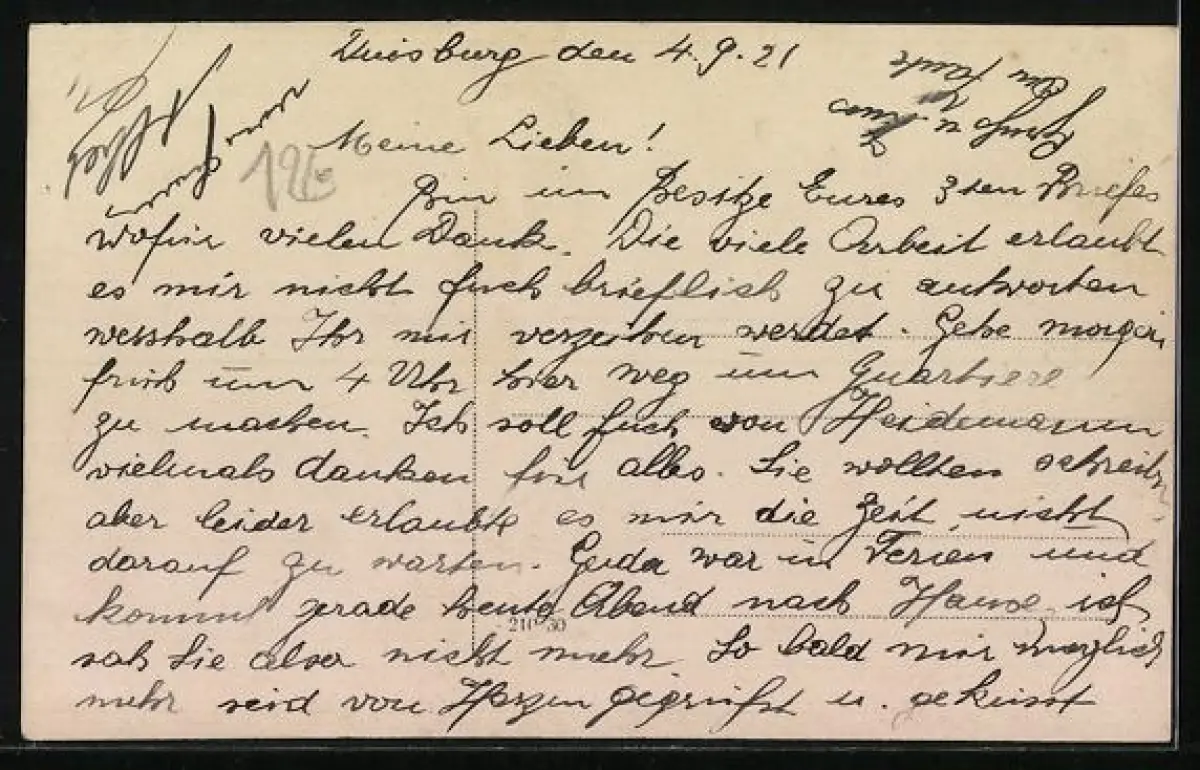 Duisburg den 4.9.21
Meine Lieben!
Bin im Besitze Eures 3ten Briefes
wofür vielen Dank. Die viele Arbeit erlaubt
es mir nicht Euch brieflich zu antworten
wesshalb Ihr mir verzeihen werdet. Gehe morgen
früh um 4 Uhr hier weg um Quartiere
zu machen. Ich soll Euch von Heidemann
vielmals danken für alles. Sie wollten schreiben
aber leider erlaubte es mir die Zeit nicht
darauf zu warten. Guda war in Ferien und
kommt gerade heute Abend nach Hause, ich
sah Sie also nicht mehr. So bald mir möglich
mehr seid von Herzen gegrüsst u. geküsst
210 30
126